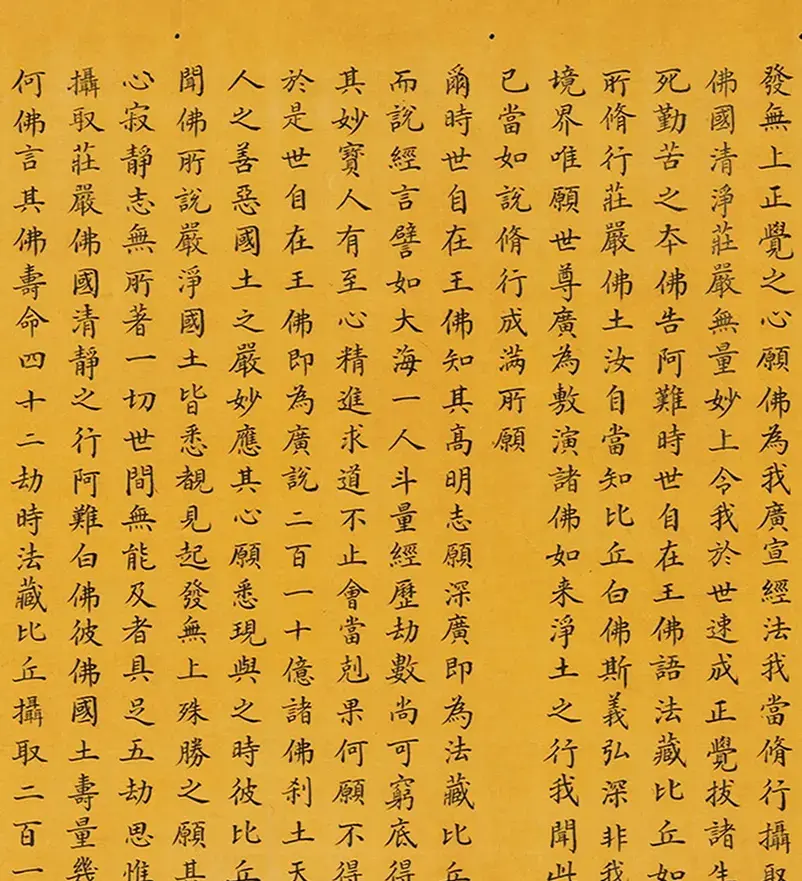 發無上正覺之心願佛為我廣宣經法我當脩行攝取
佛國清淨莊嚴無量妙上令我於世速成正覺拔諸生
死勤苦之夲佛告阿難時世自在王佛語法藏比丘如
所脩行莊嚴佛土汝自當知比丘白佛斯義弘深非我
境界唯願世尊廣為敷演諸佛如来淨土之行我聞此
已當如說脩行成满所願
爾時世自在王佛知其髙明志願深廣即為法藏比丘
而說經言譬如大海一人斗量經歷劫數尚可窮底得
其妙寶人有至心精進求道不止會當剋果何願不得
於是世自在王佛即為廣說二百一十億諸佛刹土天
人之善惡國土之嚴妙應其心願悉現與之時彼比丘
聞佛所說嚴淨國土皆悉覩見起發無上殊勝之願其
心寂靜志無所著一切世間無能及者具足五劫思惟
攝取莊嚴佛國清靜之行阿難白佛彼佛國土壽量幾
何佛言其佛壽命四十二劫時法藏比丘攝取二百一